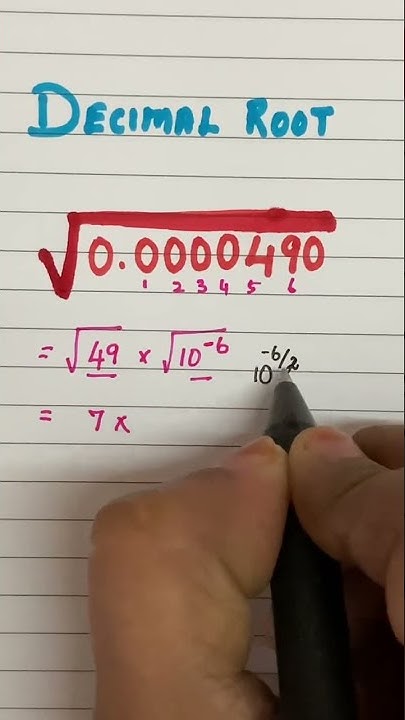 DECIMAL ROOT
√0.0000490
1 2 3 4 5 6
= √49 × √10⁻⁶ 10⁻⁶/²
= 7 ×